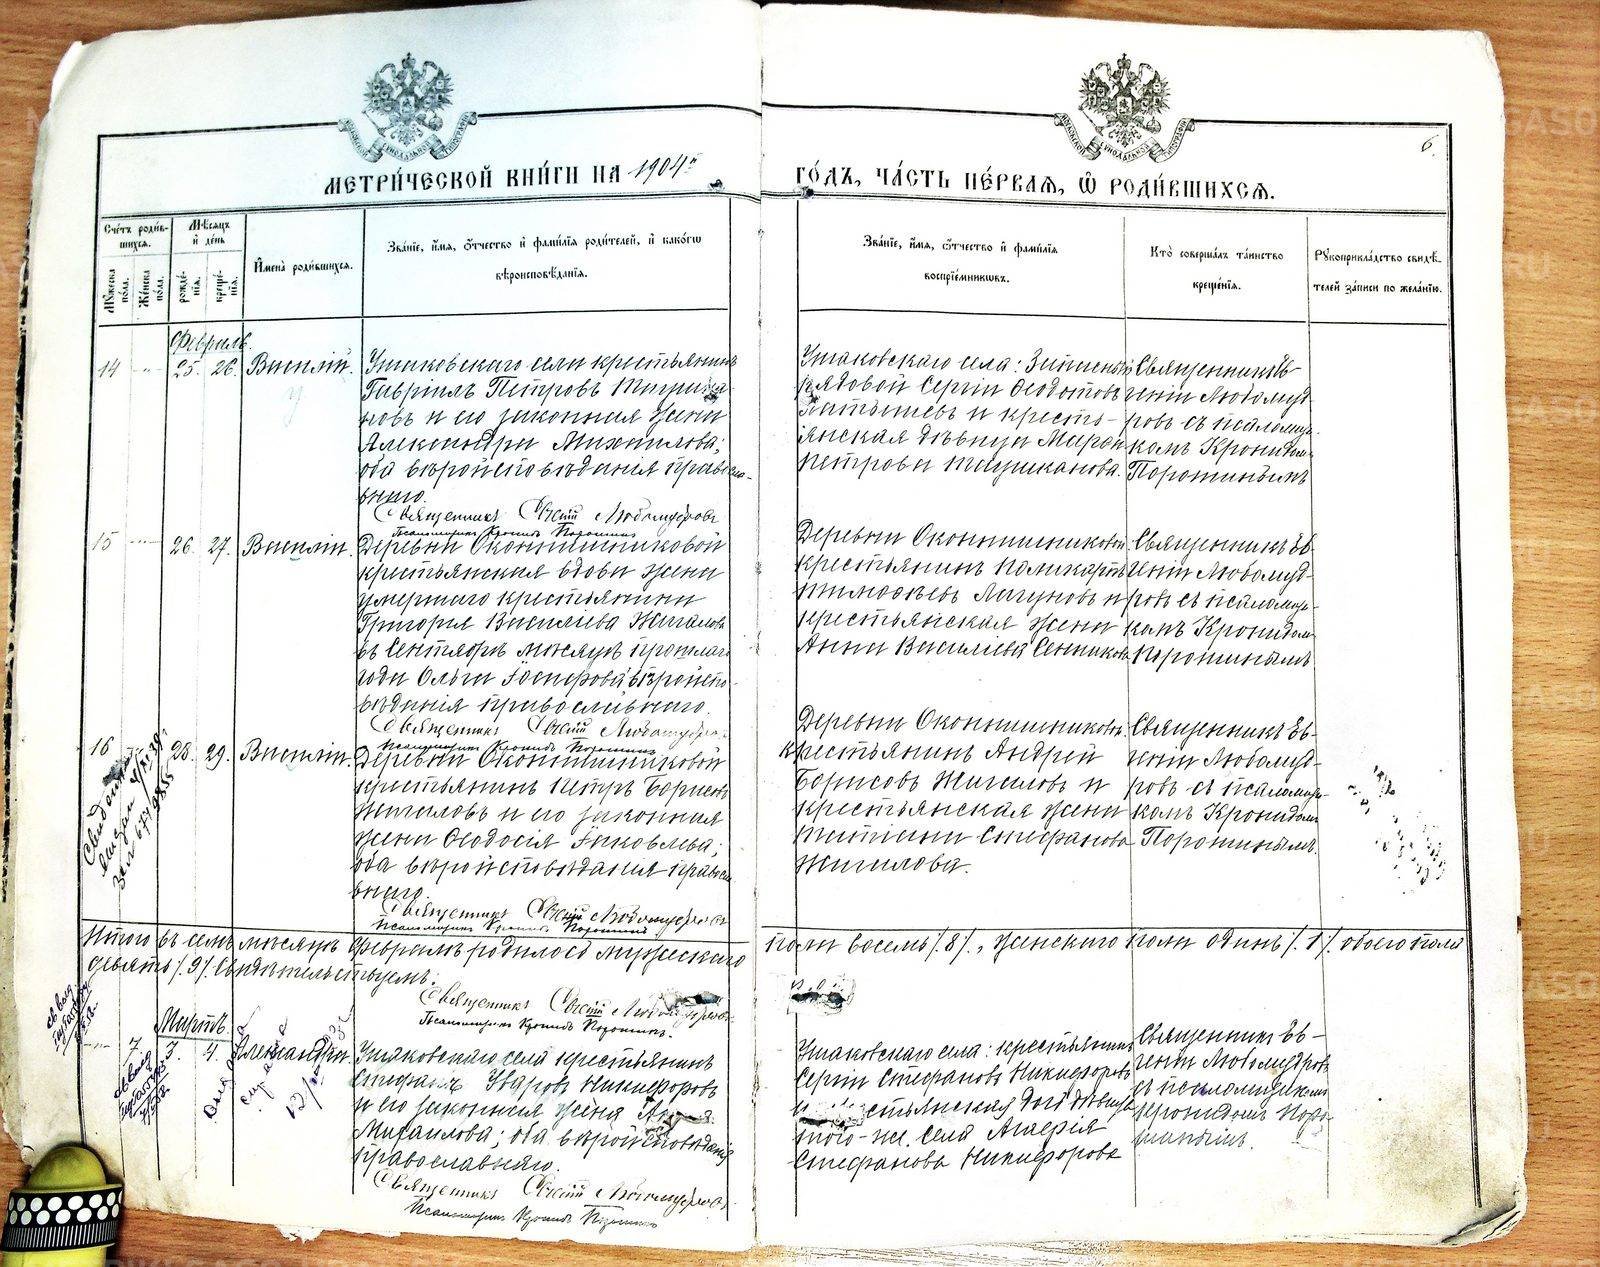 МЕТРИ́ЧЕСКОЙ КНИ́ГИ НА 1904й
ГО́ДЪ, ЧА́СТЬ ПЕ́РВАѦ, Ѽ РОДИ́ВШИХСѦ.
6.
Сче́тъ роди́в-
шихся.
Му́жеска
по́ла.
Же́нска
по́ла.
Мѣ́сяцъ
и де́нь
рожде́-
нія.
креще́-
нія.
Имена̀ роди́вшихся.
Зва́ніе, и́мя, о́тчество и фами́лія роди́телей, и како́гѡ
вѣроисповѣ́данія.
Зва́ніе, и́мя, о́тчество и фами́лія
воспріе́мниковъ.
Кто̀ соверша́лъ та́инство
креще́нія.
Рукоприкла́дство свидѣ́-
телей за́писи по жела́нію.
Февраль.
14 25. 26. Василій.
Ушаковскаго села крестьянинъ
Гавріилъ Петровъ
новъ и его законная жена
Александра Михаилова;
оба вѣроисповѣданія правосла-
внаго.
Священникъ Евгеній Любомудровъ
Псаломщикъ Кронидъ Порошинъ
Ушаковскаго села: Запасный
рядовой Сергій Ѳеодотовъ
и кресть-
янская дѣвица Марѳа
Петрова
Священникъ Ев-
геній Любомуд-
ровъ съ псаломщи-
комъ Кронидомъ
Порошинымъ
15 26. 27. Василій.
Деревни Оконишниковой
крестьянская вдова жена
умершаго крестьянина
Григорія Васильева Жигалова
въ Сентябрѣ мѣсяцѣ прошлаго
года Ольга Іосифова вѣроиспо-
вѣданія православнаго.
Священникъ Евгеній Любомудровъ
Псаломщикъ Кронидъ Порошинъ
Деревни Оконишниковой
крестьянинъ Поликарпъ
Тимоѳеевъ Лагуновъ и
крестьянская жена
Анна Василіева
Священникъ Ев-
геній Любомуд-
ровъ съ псаломщи-
комъ Кронидомъ
Порошинымъ
16 28. 29. Василій.
Деревни Оконишниковой
крестьянинъ Петръ Борисовъ
Жигаловъ и его законная
жена Ѳеодосія Іаковлева;
оба вѣроисповѣданія правосла-
внаго.
Священникъ Евгеній Любомудровъ
Псаломщикъ Кронидъ Порошинъ
Деревни Оконишниковой
крестьянинъ Андрей
Борисовъ Жигаловъ и
крестьянская жена
Татіана Стефанова
Жигалова.
Священникъ Ев-
геній Любомуд-
ровъ съ псаломщи-
комъ Кронидомъ
Порошинымъ.
Итого въ семъ мѣсяцѣ Февралѣ родилось мужескаго пола восемь /8/, женскаго пола одинъ /1/. обоего пола
девять /9/. Свидѣтельствуемъ:
Священникъ Евгеній Любомудровъ
Псаломщикъ Кронидъ Порошинъ.
Мартъ.
7 3. 4. Александра.
Ушаковскаго села крестьянинъ
Стефанъ Уваровъ Никифоровъ
и его законная жена
Михаилова; оба вѣроисповѣданія
православнаго.
Священникъ Евгеній Любомудровъ
Псаломщикъ Кронидъ Порошинъ
Ушаковскаго села: крестьянинъ
Сергій Стефановъ Никифоровъ
дѣвица
того-же села
Стефанова Никифорова
Священникъ Ев-
геній Любомудровъ
съ псаломщикомъ
Кронидомъ Поро-
шинымъ.